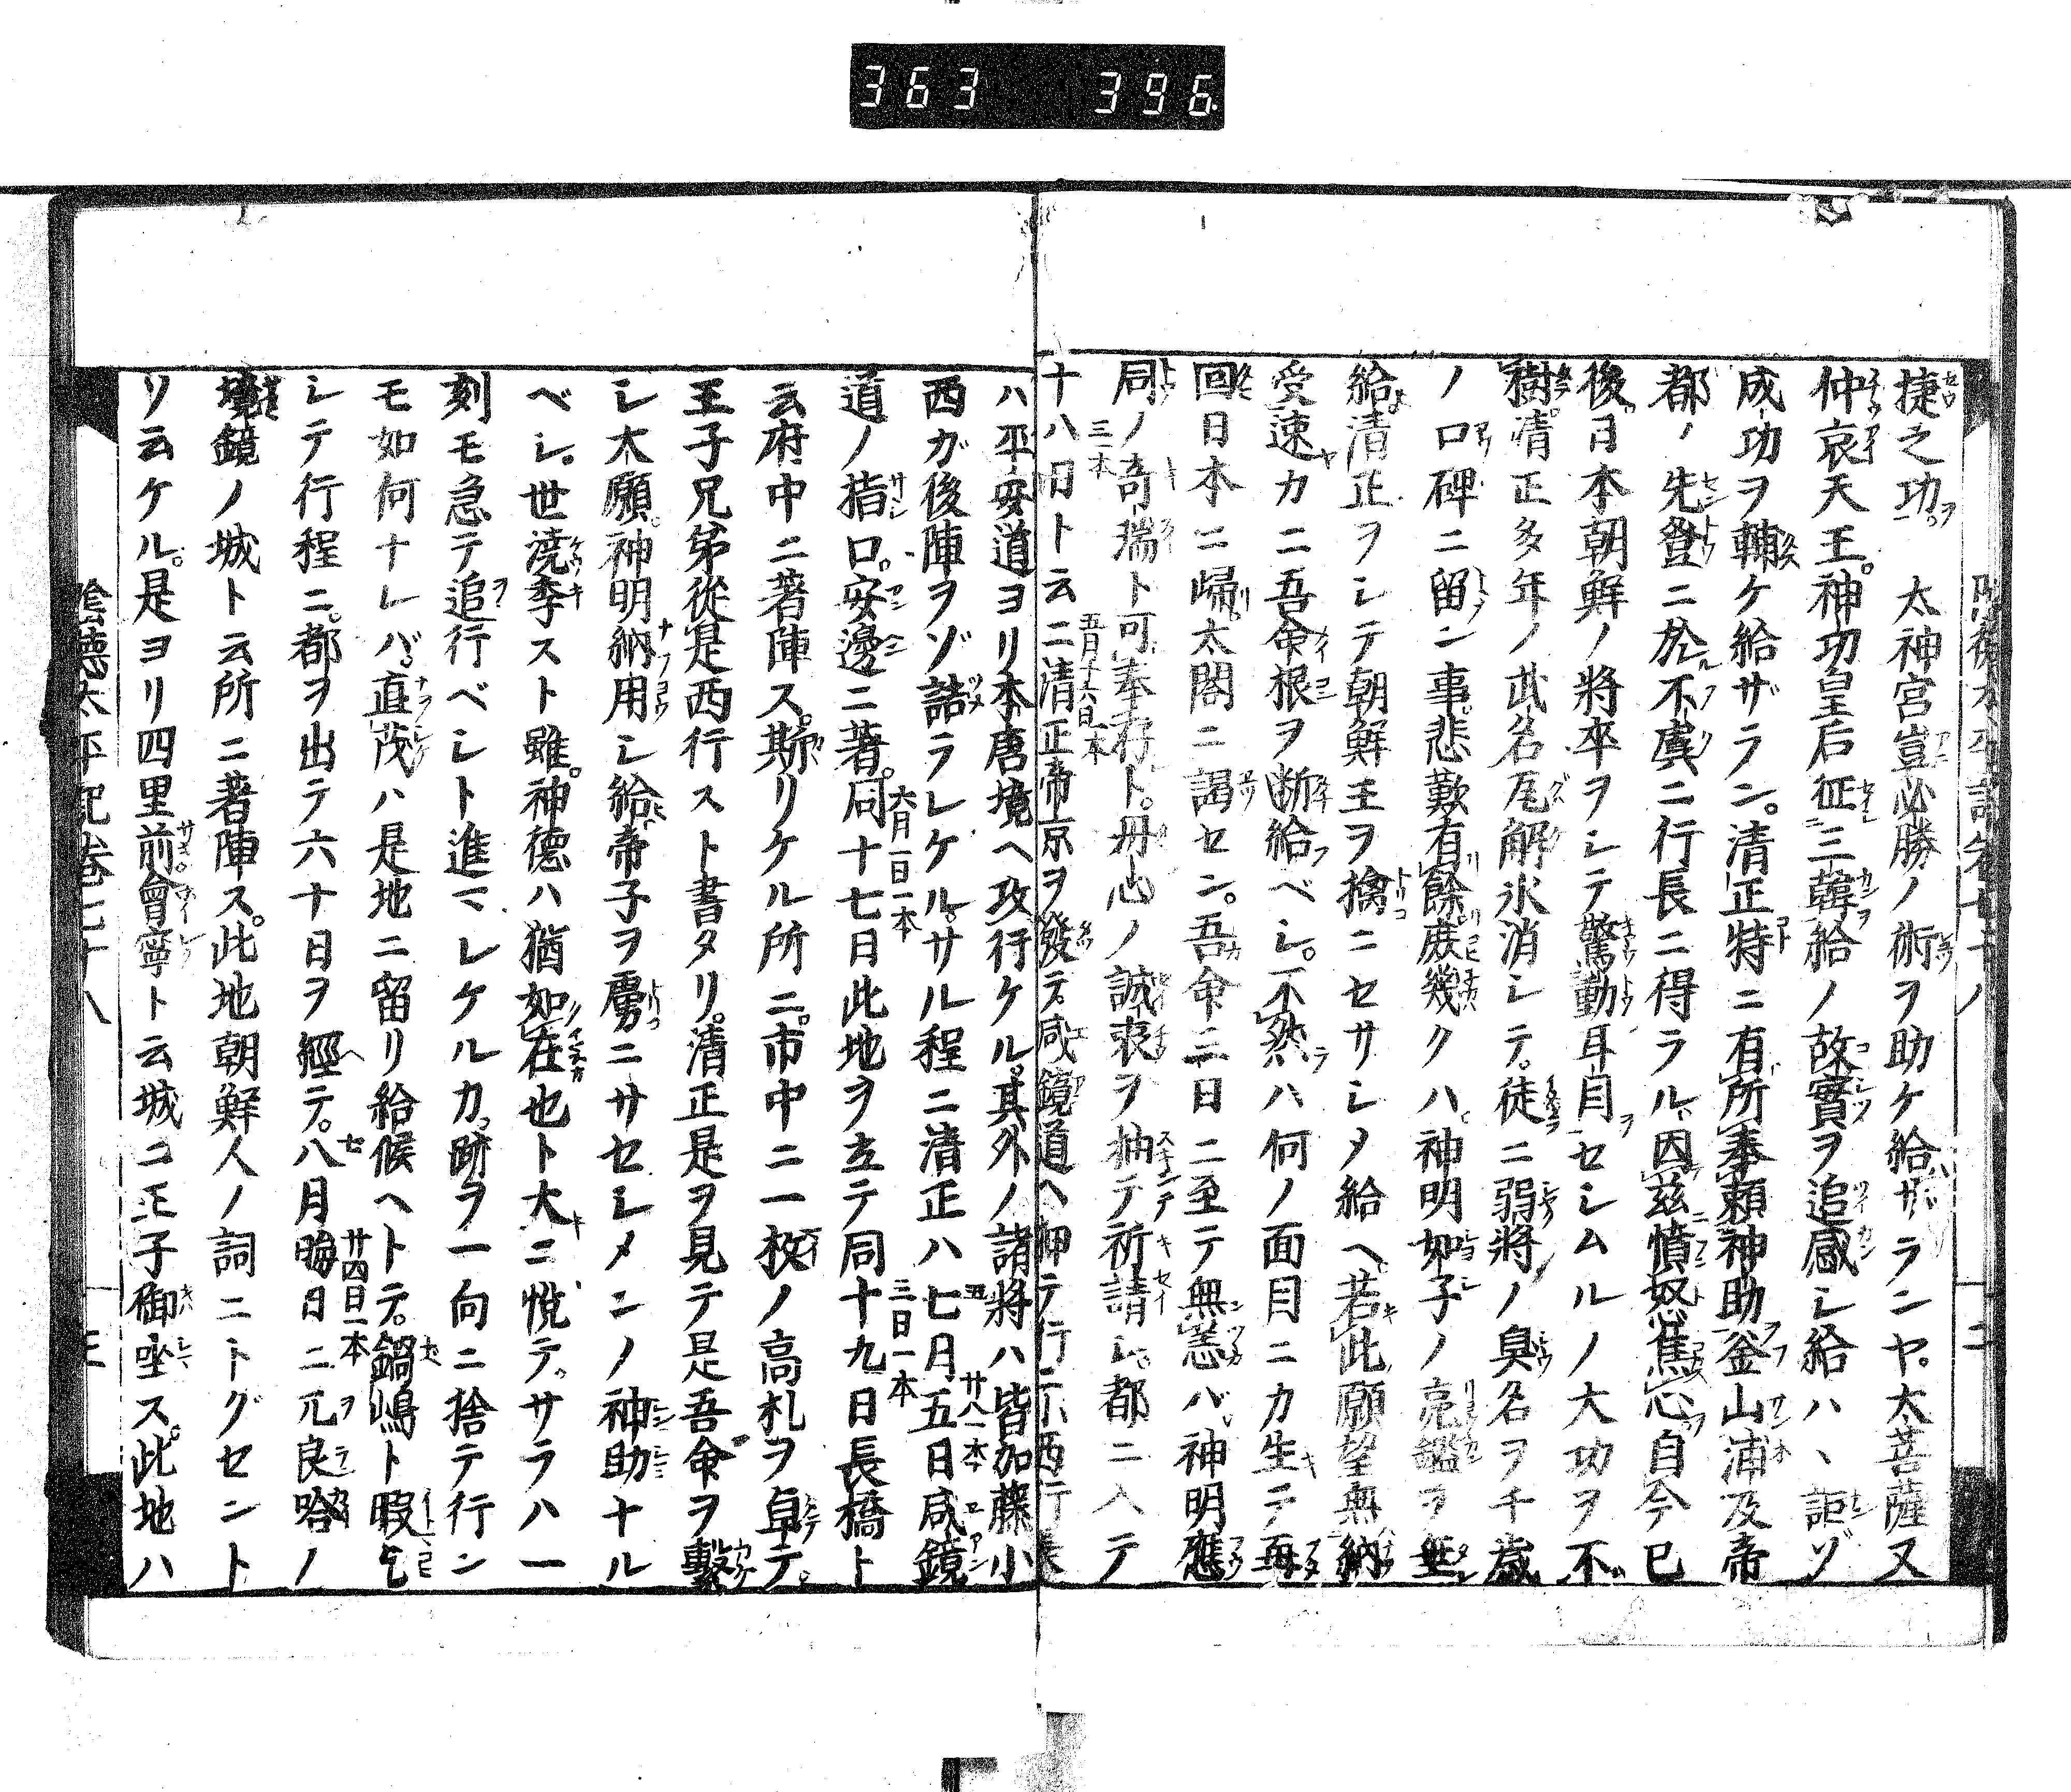 363 396
捷之功。太神宮豈必勝ノ術ヲ助ケ給ザランヤ。太菩薩又
仲哀天王。神功皇后征三韓給ノ故實ヲ追感シ給ハヽ詎ゾ
成功ヲ輔ケ給ザラン。清正特ニ有所奉頼神助釜山浦及帝
都ノ先登ニ於不虞ニ行長ニ得ラル、因茲憤怒焦心自今已
後日本朝鮮ノ將卒ヲシテ驚動耳目セシムルノ大功ヲ不
樹。清正多年ノ武名瓦解氷消シテ。徒ニ弱將ノ臭名ヲ千歳
ノ口碑ニ留ン事。悲歎有餘庻幾クハ。神明如子ノ亮鑑ヲ垂
給清正ヲシテ朝鮮王ヲ擒ニセサシメ給ヘ。若此願望無納
受速カニ吾命根ヲ断給ベシ。不然ハ何ノ面目ニカ生テ再
回日本ニ歸。太閤ニ謁セン。吾命三日ニ至テ無恙バ。神明應
同ノ竒瑞ト可奉存ト。丹心ノ誠衷ヲ抽テ祈請シ。都ニ入テ
十八日ト云ニ清正帝京ヲ發テ。咸鏡道ヘ押テ行
三一本 五月十六日一本
ハ平安道ヨリ本唐境ヘ攻行ケル。其外ノ諸將ハ皆加藤小
西ガ後陣ヲゾ詰ラレケル。サル程ニ清正ハ七月五日咸鏡
廿八一本
道ノ指口。安邊ニ著。同十七日此地ヲ立テ同十九日長橋ト
六月一日一本 三日一本
云府中ニ著陣ス。斯リケル所ニ。市中ニ一枚ノ高札ヲ阜テ。
王子兄弟從是西行スト書タリ。清正是ヲ見テ是吾命ヲ繫
シ大願。神明納用シ給。帝子ヲ虜ニサセシメンノ神助ナル
ベシ。世澆季スト雖。神德ハ猶如在也ト大ニ悅テ。サラハ一
刻モ急テ追行ベシト進ミレケルカ。跡ヲ一向ニ捨テ行ン
モ如何ナレバ。直茂ハ是地ニ留リ給候ヘトテ。鍋嶋ト暇乞
シテ行程ニ。都ヲ出テ六十日ヲ經テ。八月晦日ニ兀良哈ノ
廿四日一本
境鏡ノ城ト云所ニ著陣ス。此地朝鮮人ノ詞ニトグセント
リ云ケル。是ヨリ四里前會寧ト云城ニ王子御坐ス。此地ハ
陰德太平記卷七十八